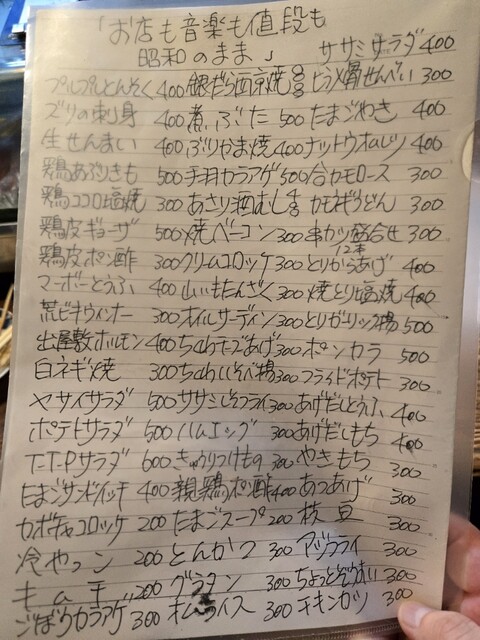 「お店も音楽も値段も
昭和のまま」 ササミサラダ 400
プルプルとんそく 400 銀だら西京焼 ヒラメ骨せんべい 300
ズリの刺身 400 煮ぶた 500 たまごやき 400
生せんまい 400 ぶりかま焼 400 ナットウオムレツ 400
鶏あぶりきも 500 手羽カラアゲ 500 合カモロース 300
鶏ココロ塩焼 300 あさり酒むし カモネギうどん 300
鶏皮ギョーザ 500 焼ベーコン 300 串カツ盛合せ 300
12本
鶏皮ポン酢 300 クリームコロッケ 300 とりからあげ 400
マーボーとうふ 400 山いもたんざく 300 焼とり塩焼 400
荒ビキウィンナー 300 オイルサーディン 300 とりガーリック揚 500
出屋敷ホルモン 400 ちくわチーズあげ 300 ポンカラ 500
白ネギ焼 300 ちくわいそべ揚 300 フライドポテト 300
ヤサイサラダ 500 ササミしそフライ 300 あげだしとうふ 400
ポテトサラダ 500 ハムエッグ 300 あげだしもち 400
T-T-Pサラダ 600 きゅうりつけもの 300 やきもち 300
たまごサンドイッチ 400 親鶏ポン酢 400 あつあげ 300
カボチャコロッケ 200 たまごスープ 200 枝豆 300
冷やっコ 200 とんかつ 300 アジフライ 300
キムチ 200 グラタン 300 ちょっとぞうすい 300
ごぼうカラアゲ 300 オムライス 300 チキンカツ 300